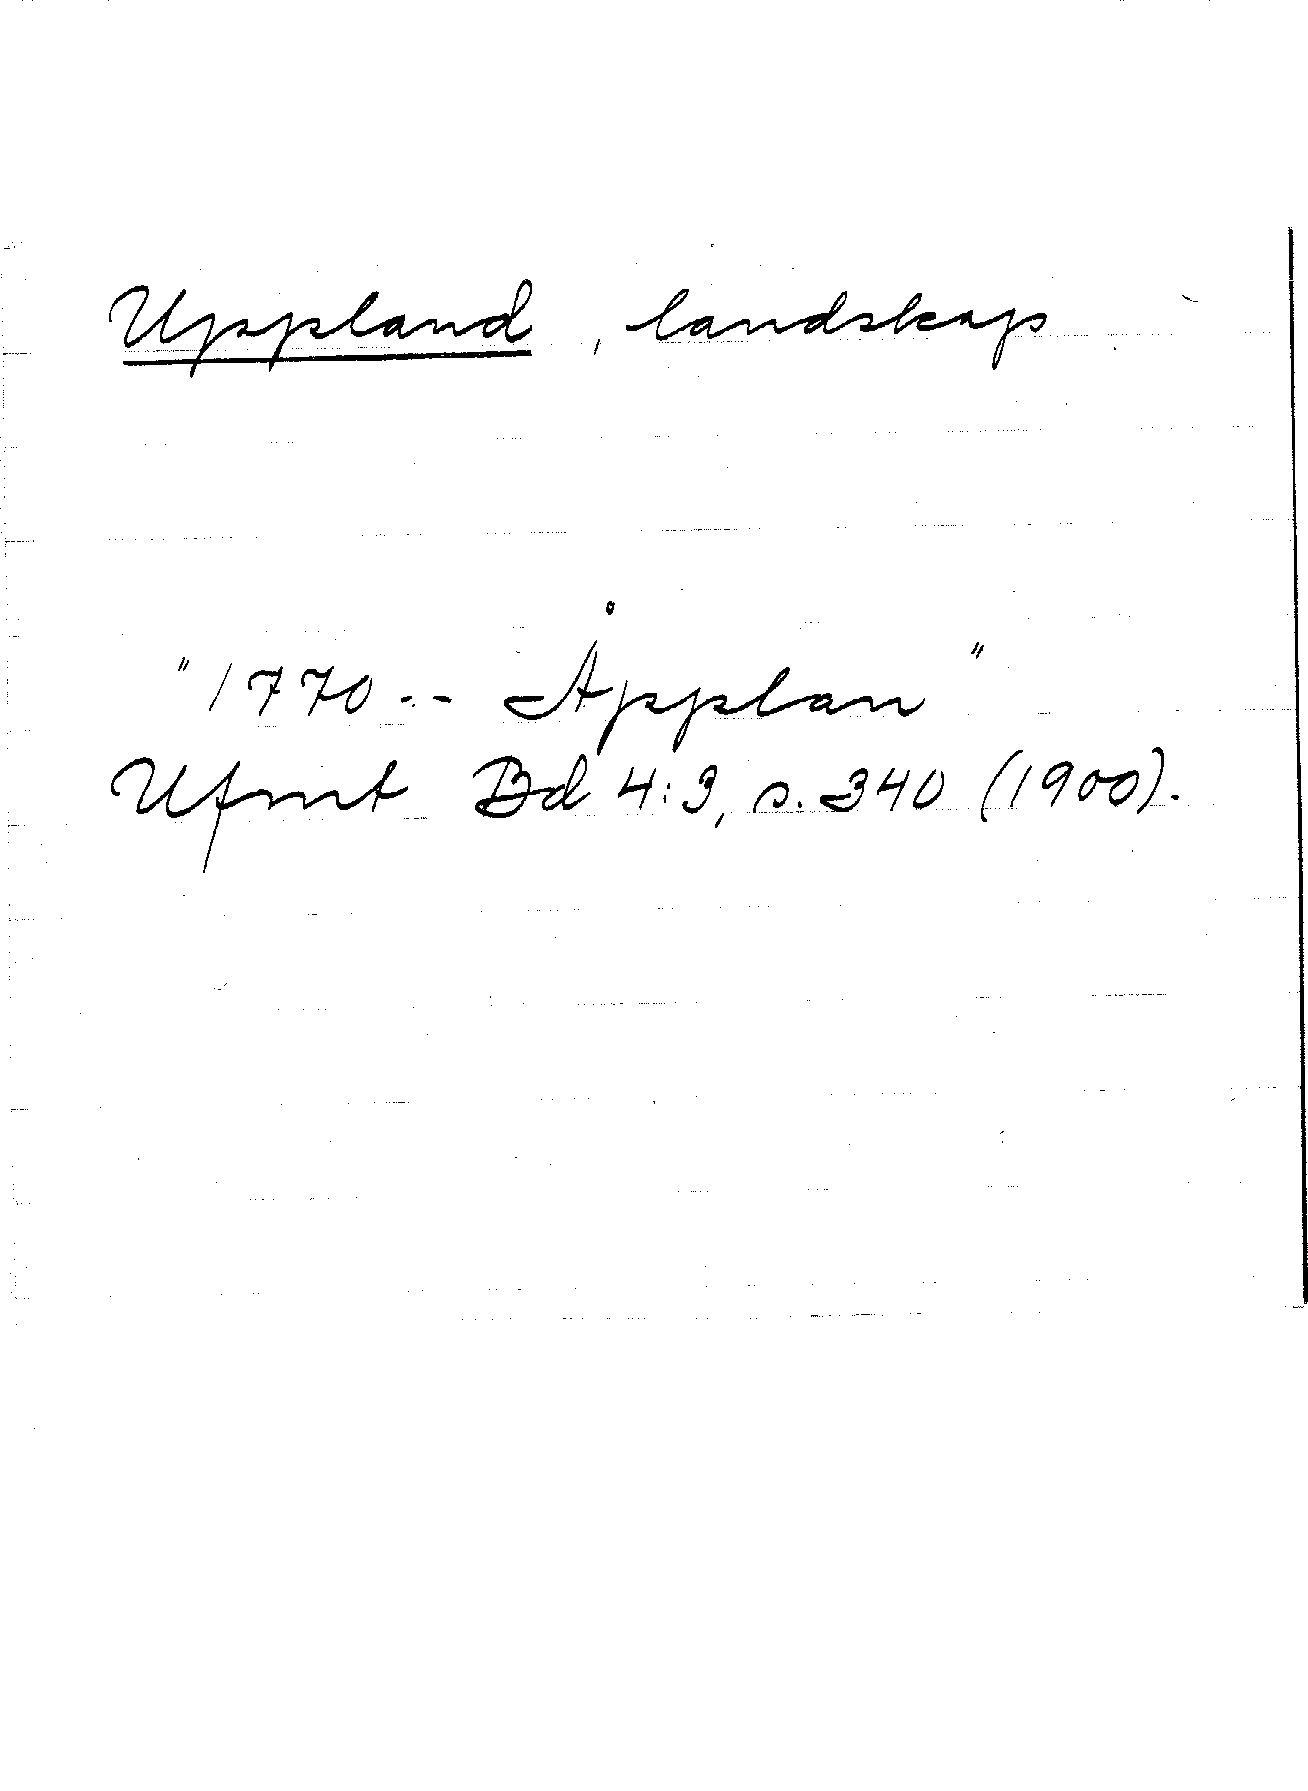 Uppland, landskap
"1770 -- Åpplan"
Ufmt Bd 4:3, s. 340 (1900).